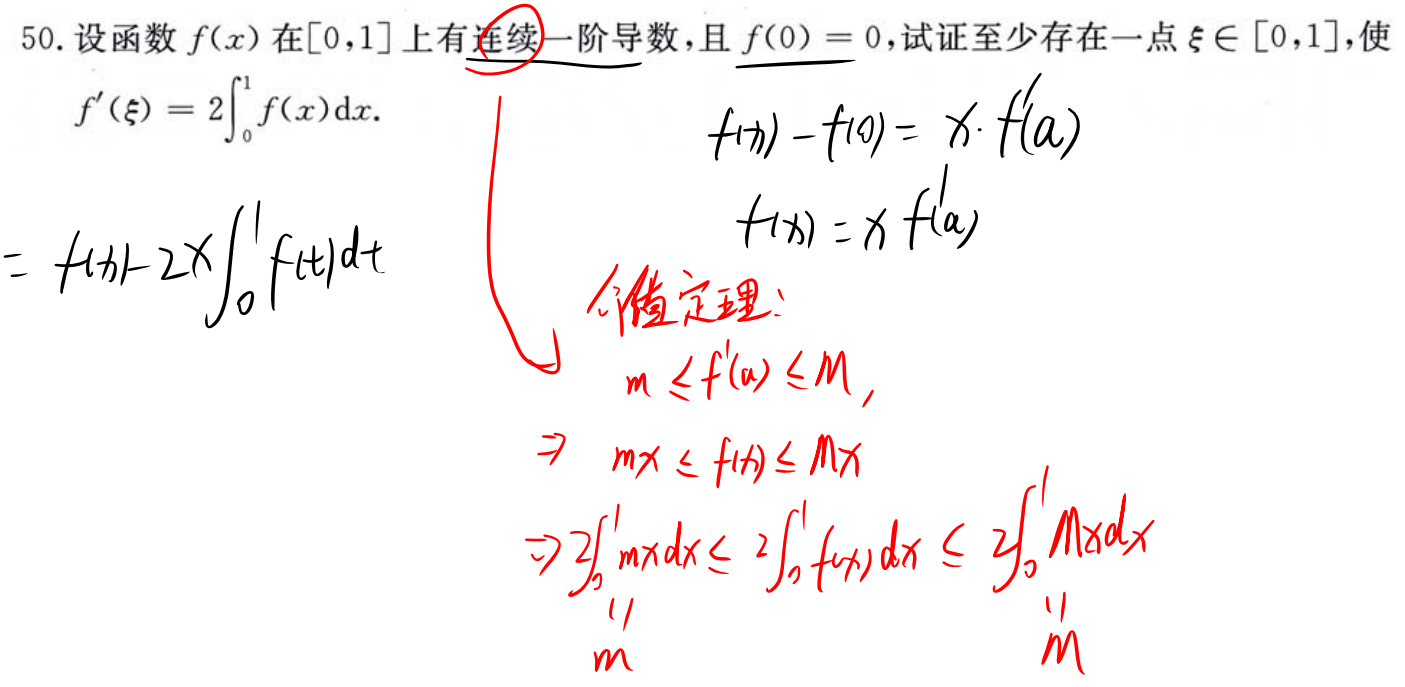 50. 设函数 f(x) 在[0,1]上有连续一阶导数,且 f(0) = 0,试证至少存在一点 ξ ∈ [0,1],使
f′(ξ) = 2∫₀¹ f(x)dx.
f(x) - f(0) = x · f′(a)
f(x) = x f′(a)
= f(x) - 2x∫₀¹ f(t)dt
介值定理:
m ≤ f′(a) ≤ M,
⇒ mx ≤ f(x) ≤ Mx
⇒ 2∫₀¹ mxdx ≤ 2∫₀¹ f(x)dx ≤ 2∫₀¹ Mxdx
= =
m M